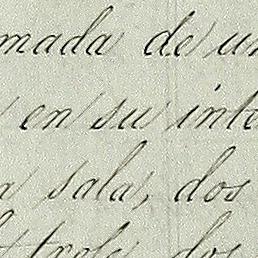 mada de un
en su inte
a sala, dos
dos